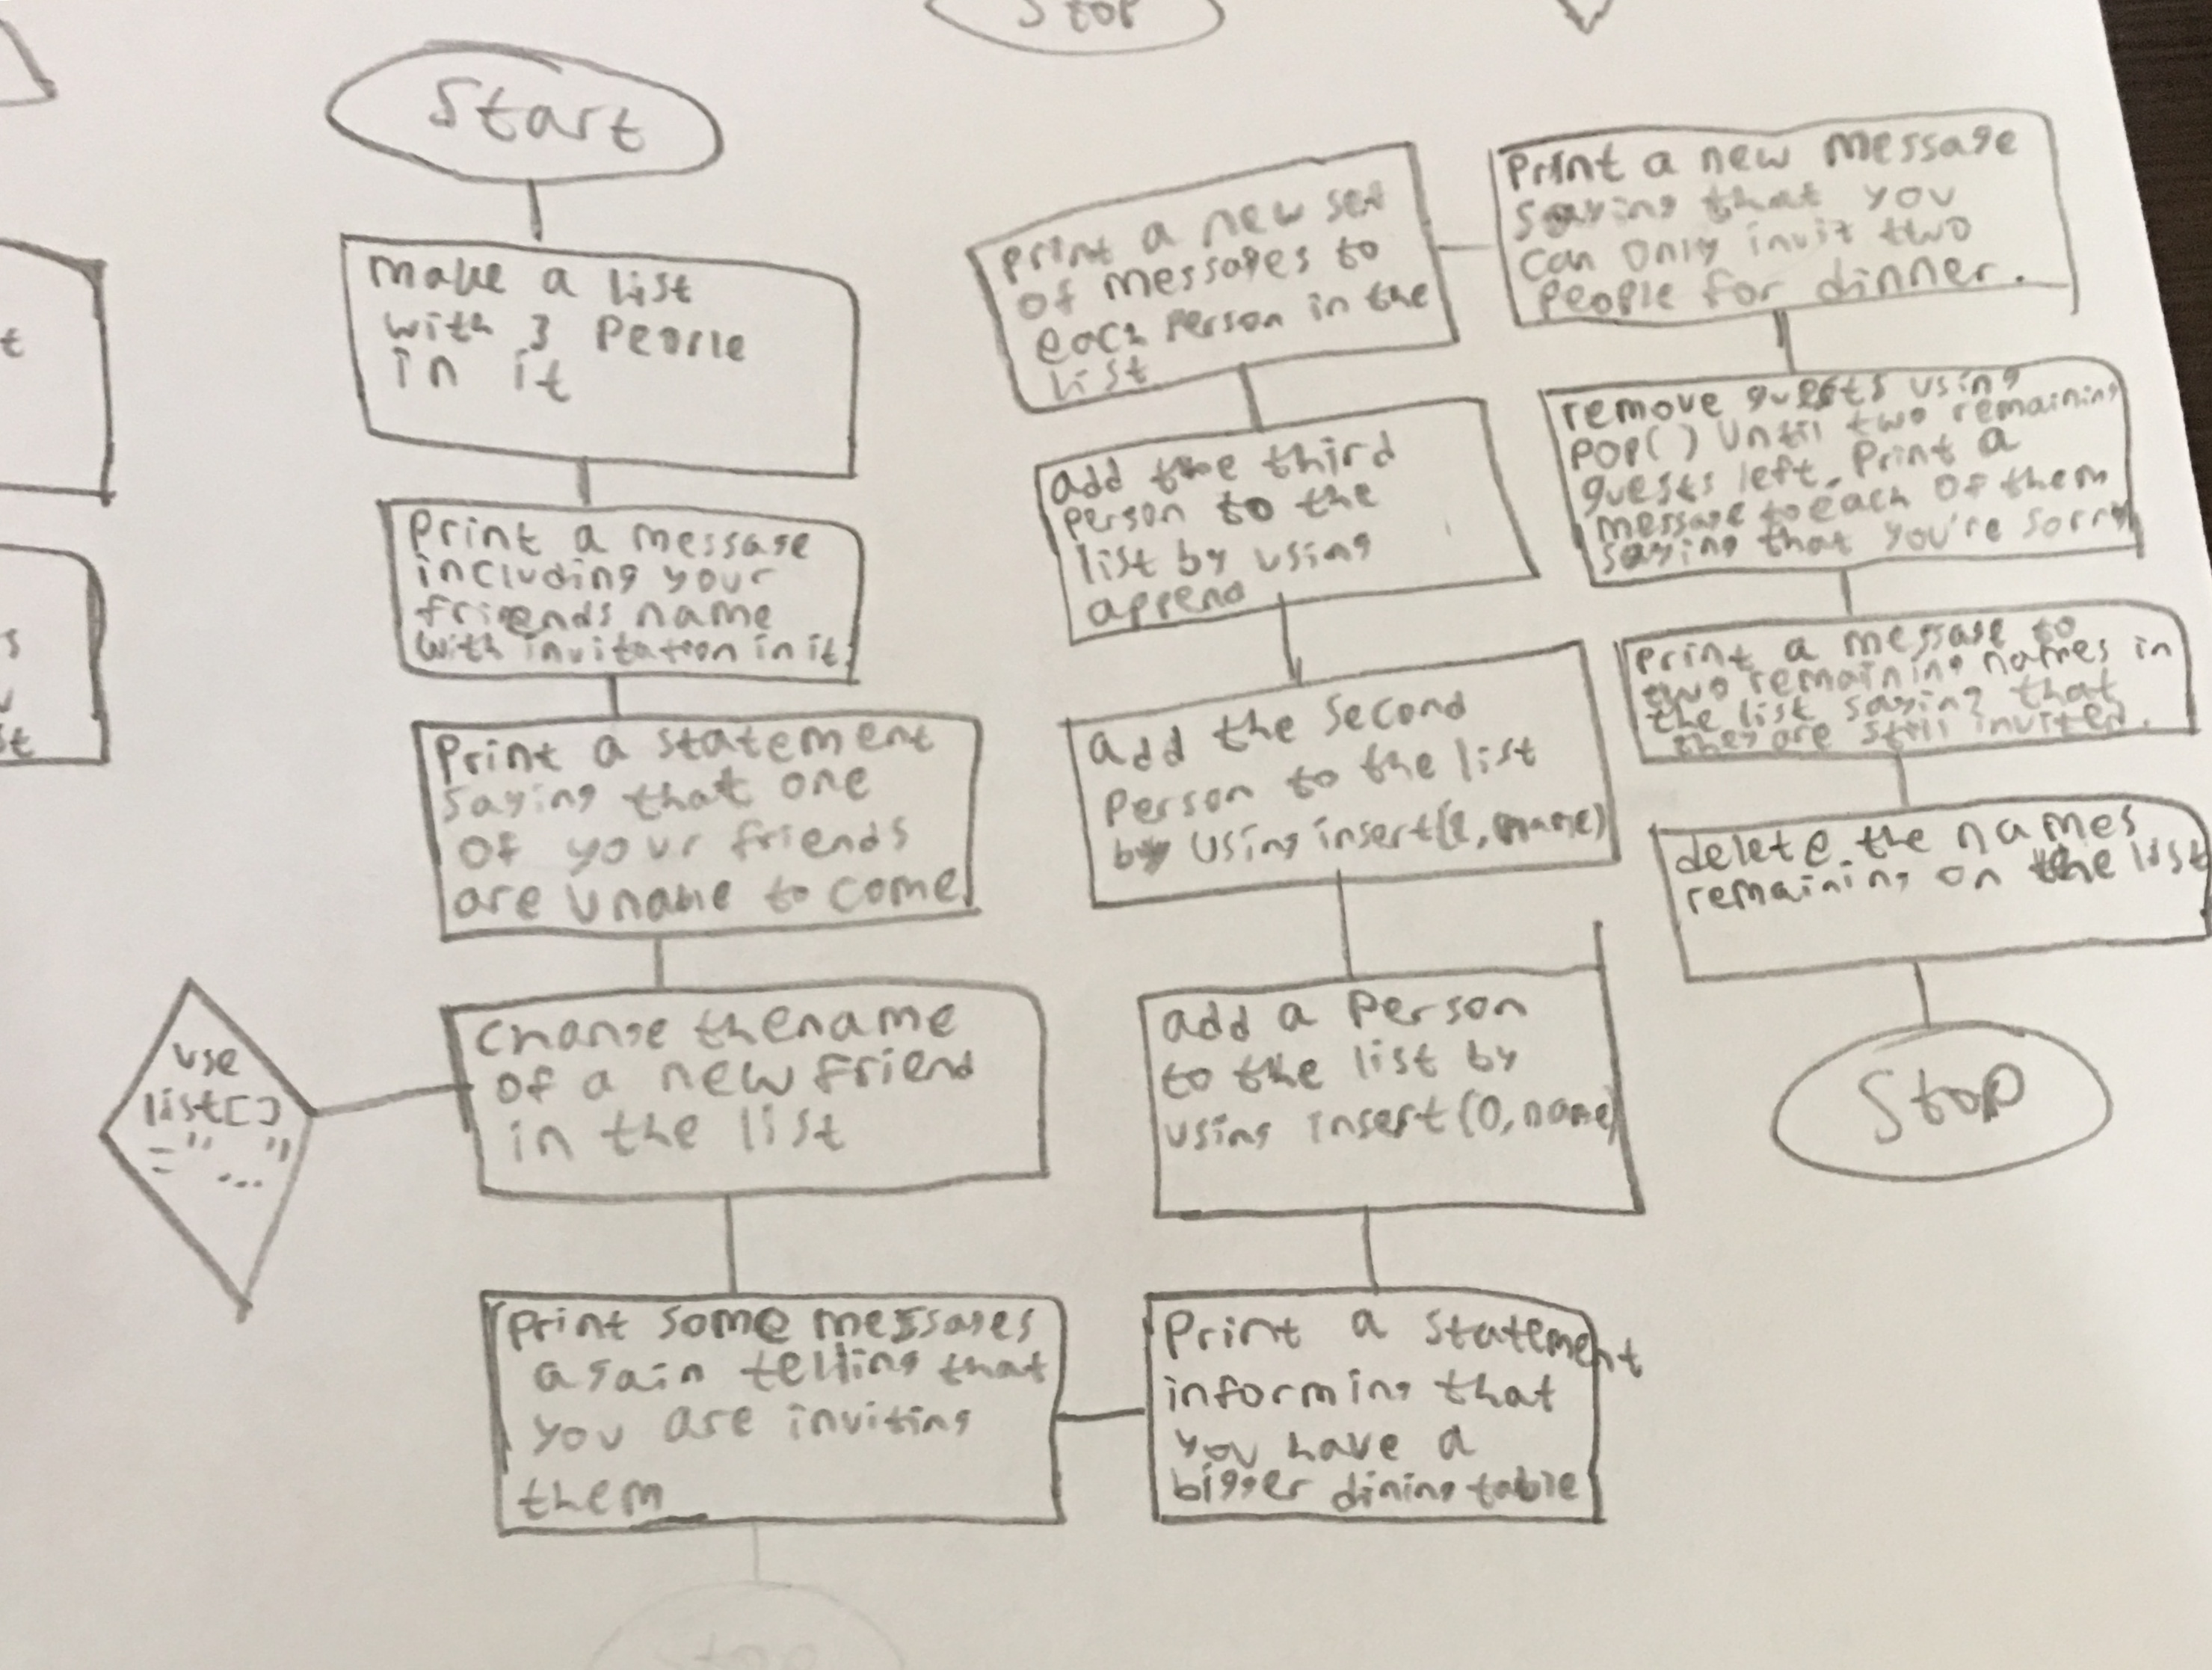 Stop
Start
make a list
with 3 people
in it
print a message
including your
friends name
with invitation in it.
Print a statement
saying that one
of your friends
are unable to come
change the name
of a new friend
in the list
use
list[]
=" ... "
print some messages
again telling that
you are inviting
them
Stop
Print a statement
informing that
you have a
bigger dining table
add a person
to the list by
using insert(0, name)
add the second
person to the list
by using insert(2, name)
add the third
person to the
list by using
append
print a new set
of messages to
each person in the
list
Print a new message
saying that you
can only invit two
people for dinner.
remove guests using
pop() until two remaining
guests left. Print a
message to each of them
saying that you're sorry
print a message to
two remaining names in
the list saying that
they are still invited.
delete the names
remaining on the list
Stop
t
s
v
st